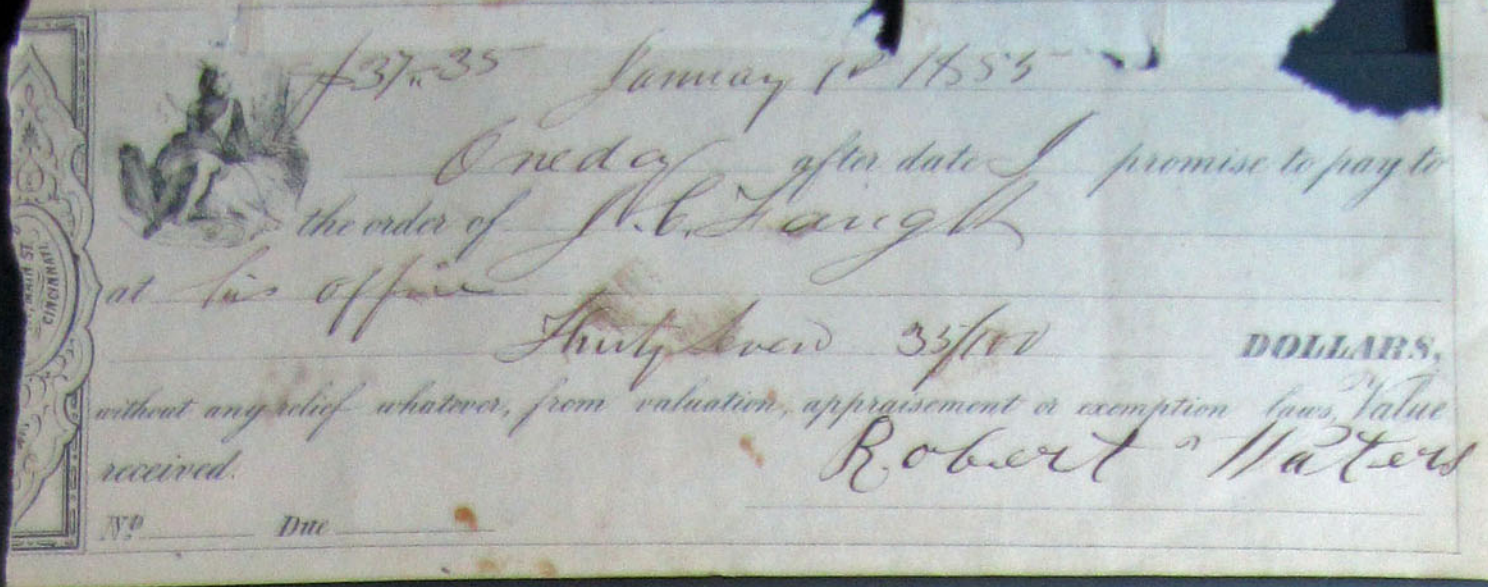 $37.35 January 1st 1855
One day after date I promise to pay to
the order of J. C. Faught
at his office
Thirty Seven 35/100 DOLLARS,
without any relief whatever, from valuation, appraisement or exemption laws, Value
received. Robert Waters
No. Due
MAIN ST.
CINCINNATI.